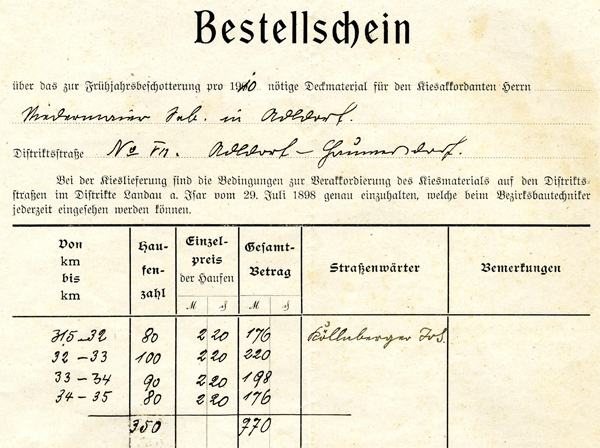 Bestellschein
über das zur Frühjahrsbeschotterung pro 1910 nötige Deckmaterial für den Kiesakkordanten Herrn
Niedermaier Seb. in Adldorf.
Distriktsstraße No VII. Adldorf – Haunersdorf.
Bei der Kieslieferung sind die Bedingungen zur Verakkordierung des Kiesmaterials auf den Distrikts-
straßen im Distrikte Landau a. Isar vom 29. Juli 1898 genau einzuhalten, welche beim Bezirksbautechniker
jederzeit eingesehen werden können.
Von km bis km | Hau-fen-zahl | Einzel-preis der Haufen M ₰ | Gesamt-Betrag M ₰ | Straßenwärter | Bemerkungen
315–32 80 2 20 176 Köllnberger Jos.
32–33 100 2 20 220
33–34 90 2 20 198
34–35 80 2 20 176
350 770